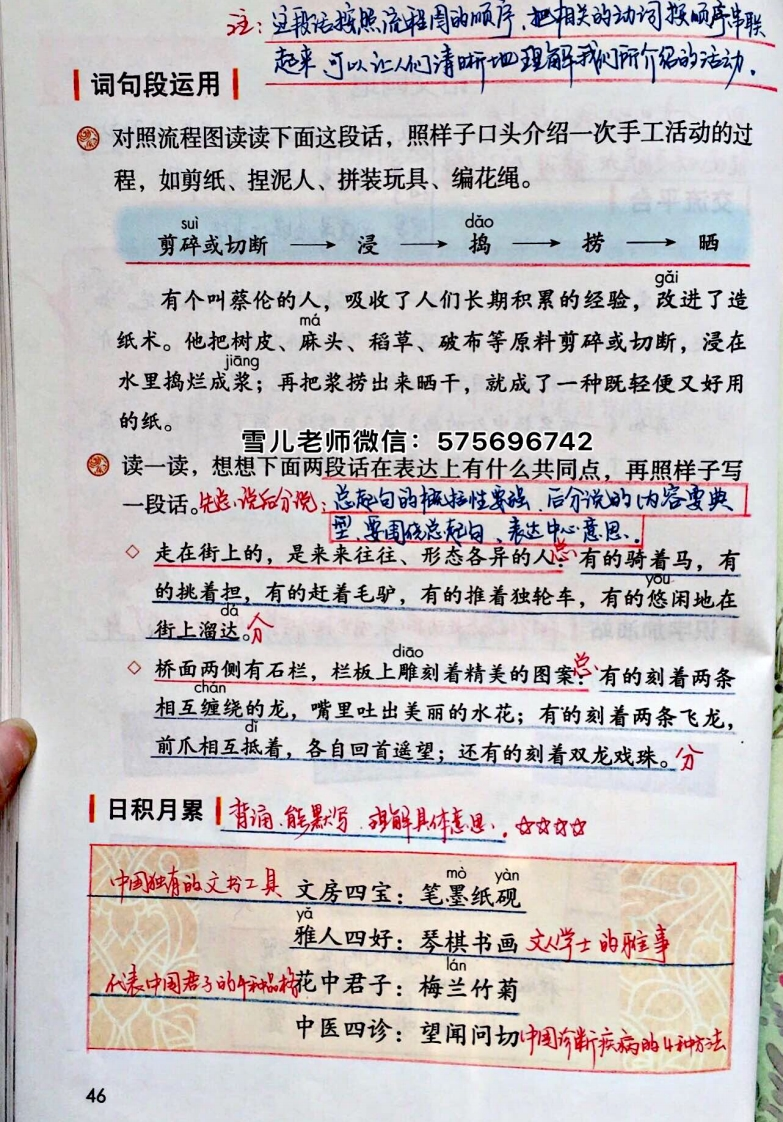 注：这段话按照流程图的顺序，把相关的动词按顺序串联
起来，可以让人们清晰地理解我们所介绍的活动。
词句段运用
对照流程图读读下面这段话，照样子口头介绍一次手工活动的过
程，如剪纸、捏泥人、拼装玩具、编花绳。
suì dǎo
剪碎或切断 → 浸 → 捣 → 捞 → 晒
gǎi
有个叫蔡伦的人，吸收了人们长期积累的经验，改进了造
má
纸术。他把树皮、麻头、稻草、破布等原料剪碎或切断，浸在
jiāng
水里捣烂成浆；再把浆捞出来晒干，就成了一种既轻便又好用
的纸。
雪儿老师微信：575696742
读一读，想想下面两段话在表达上有什么共同点，再照样子写
一段话。先总说后分说：总起句的概括性要强，后分说的内容要典
型，要围绕总起句，表达中心意思。
◇ 走在街上的，是来来往往、形态各异的人：总 有的骑着马，有
yōu
的挑着担，有的赶着毛驴，有的推着独轮车，有的悠闲地在
dá
街上溜达。分
diāo
◇ 桥面两侧有石栏，栏板上雕刻着精美的图案：总 有的刻着两条
chán
相互缠绕的龙，嘴里吐出美丽的水花；有的刻着两条飞龙，
dǐ
前爪相互抵着，各自回首遥望；还有的刻着双龙戏珠。分
日积月累 背诵、能默写、理解具体意思。☆☆☆☆
mò yàn
中国独有的文书工具 文房四宝：笔墨纸砚
yǎ
雅人四好：琴棋书画 文人学士的雅事
lán
代表中国君子的4种品格 花中君子：梅兰竹菊
中医四诊：望闻问切 中国诊断疾病的4种方法
46